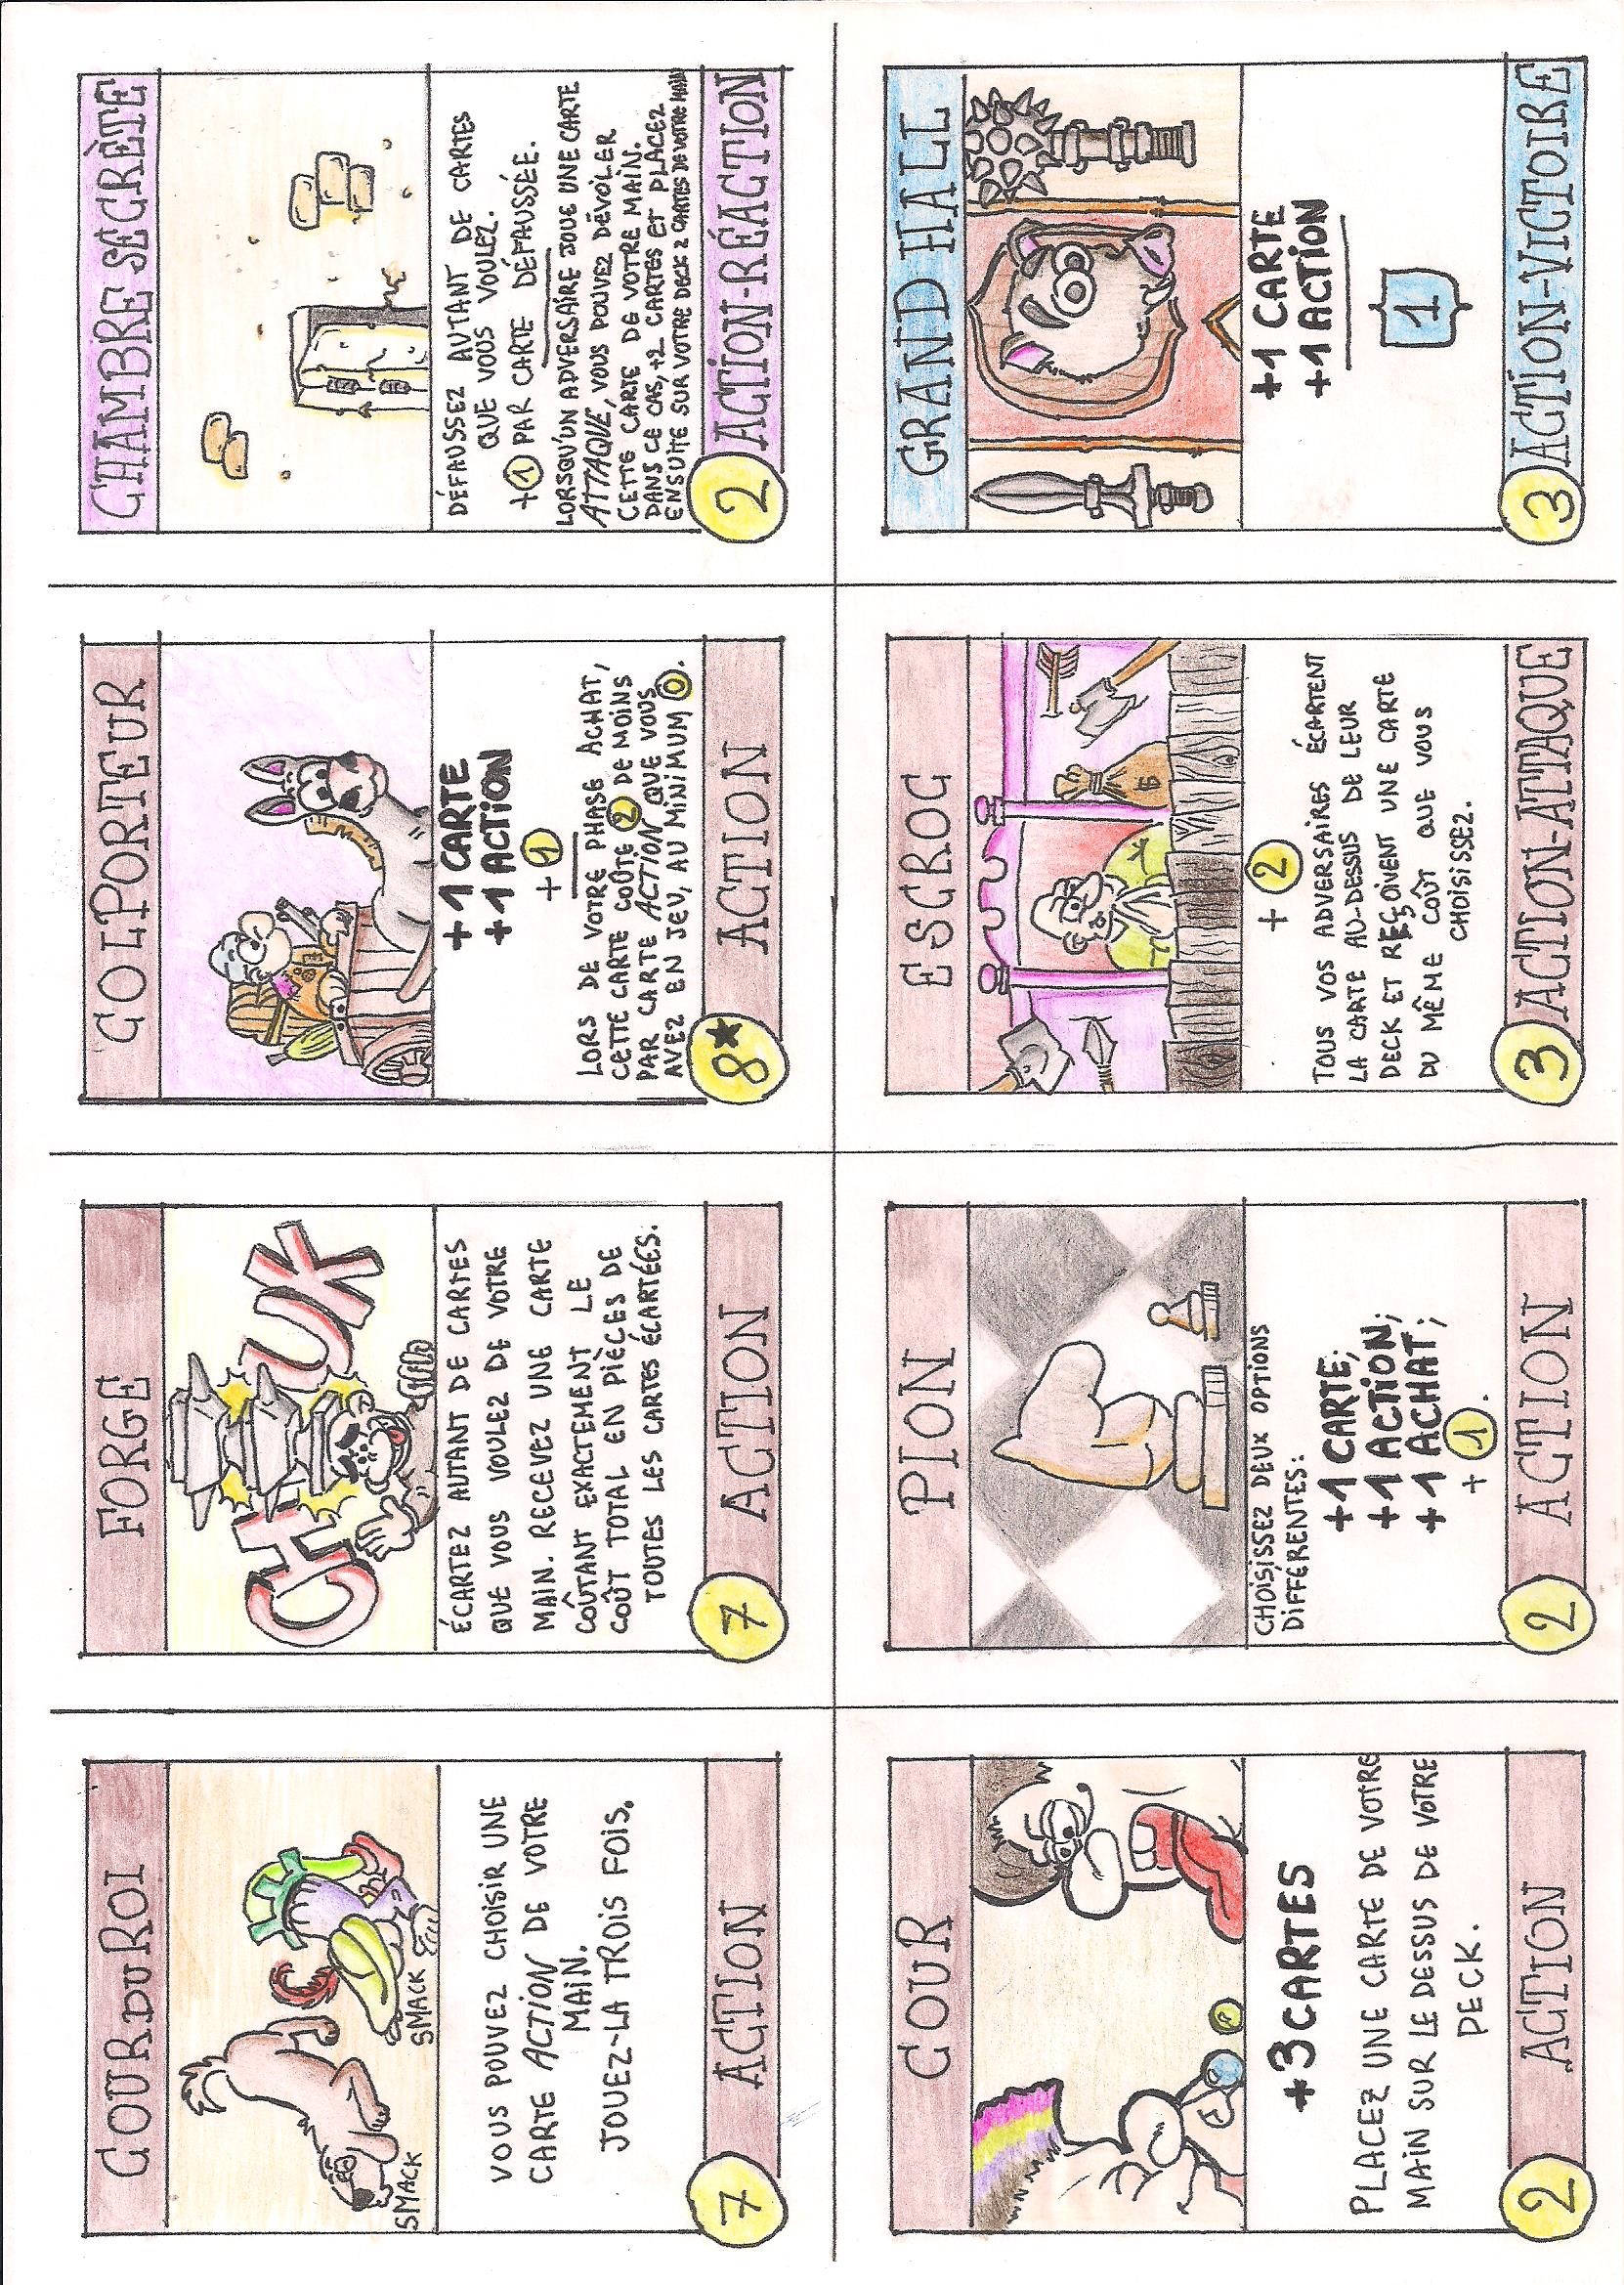 COUR DU ROI
SMACK
SMACK
VOUS POUVEZ CHOISIR UNE
CARTE ACTION DE VOTRE
MAIN.
JOUEZ-LA TROIS FOIS.
7
ACTION
FORGE
ÉCARTEZ AUTANT DE CARTES
QUE VOUS VOULEZ DE VOTRE
MAIN. RECEVEZ UNE CARTE
COÛTANT EXACTEMENT LE
COÛT TOTAL EN PIÈCES DE
TOUTES LES CARTES ÉCARTÉES.
7
ACTION
COLPORTEUR
+1 CARTE
+1 ACTION
+ 1
LORS DE VOTRE PHASE ACHAT,
CETTE CARTE COÛTE 2 DE MOINS
PAR CARTE ACTION QUE VOUS
AVEZ EN JEU, AU MINIMUM 0.
8★
ACTION
CHAMBRE SECRÈTE
DÉFAUSSEZ AUTANT DE CARTES
QUE VOUS VOULEZ.
+1 PAR CARTE DÉFAUSSÉE.
LORSQU'UN ADVERSAIRE JOUE UNE CARTE
ATTAQUE, VOUS POUVEZ DÉVOILER
CETTE CARTE DE VOTRE MAIN.
DANS CE CAS, +2 CARTES ET PLACEZ
ENSUITE SUR VOTRE DECK 2 CARTES DE VOTRE MAIN
2
ACTION-RÉACTION
COUR
+3 CARTES
PLACEZ UNE CARTE DE VOTRE
MAIN SUR LE DESSUS DE VOTRE
DECK.
2
ACTION
PION
CHOISISSEZ DEUX OPTIONS
DIFFÉRENTES:
+1 CARTE;
+1 ACTION;
+1 ACHAT;
+ 1.
2
ACTION
ESCROC
$
+ 2
TOUS VOS ADVERSAIRES ÉCARTENT
LA CARTE AU-DESSUS DE LEUR
DECK ET REÇOIVENT UNE CARTE
DU MÊME COÛT QUE VOUS
CHOISISSEZ.
3
ACTION-ATTAQUE
GRAND HALL
+1 CARTE
+1 ACTION
1
3
ACTION-VICTOIRE